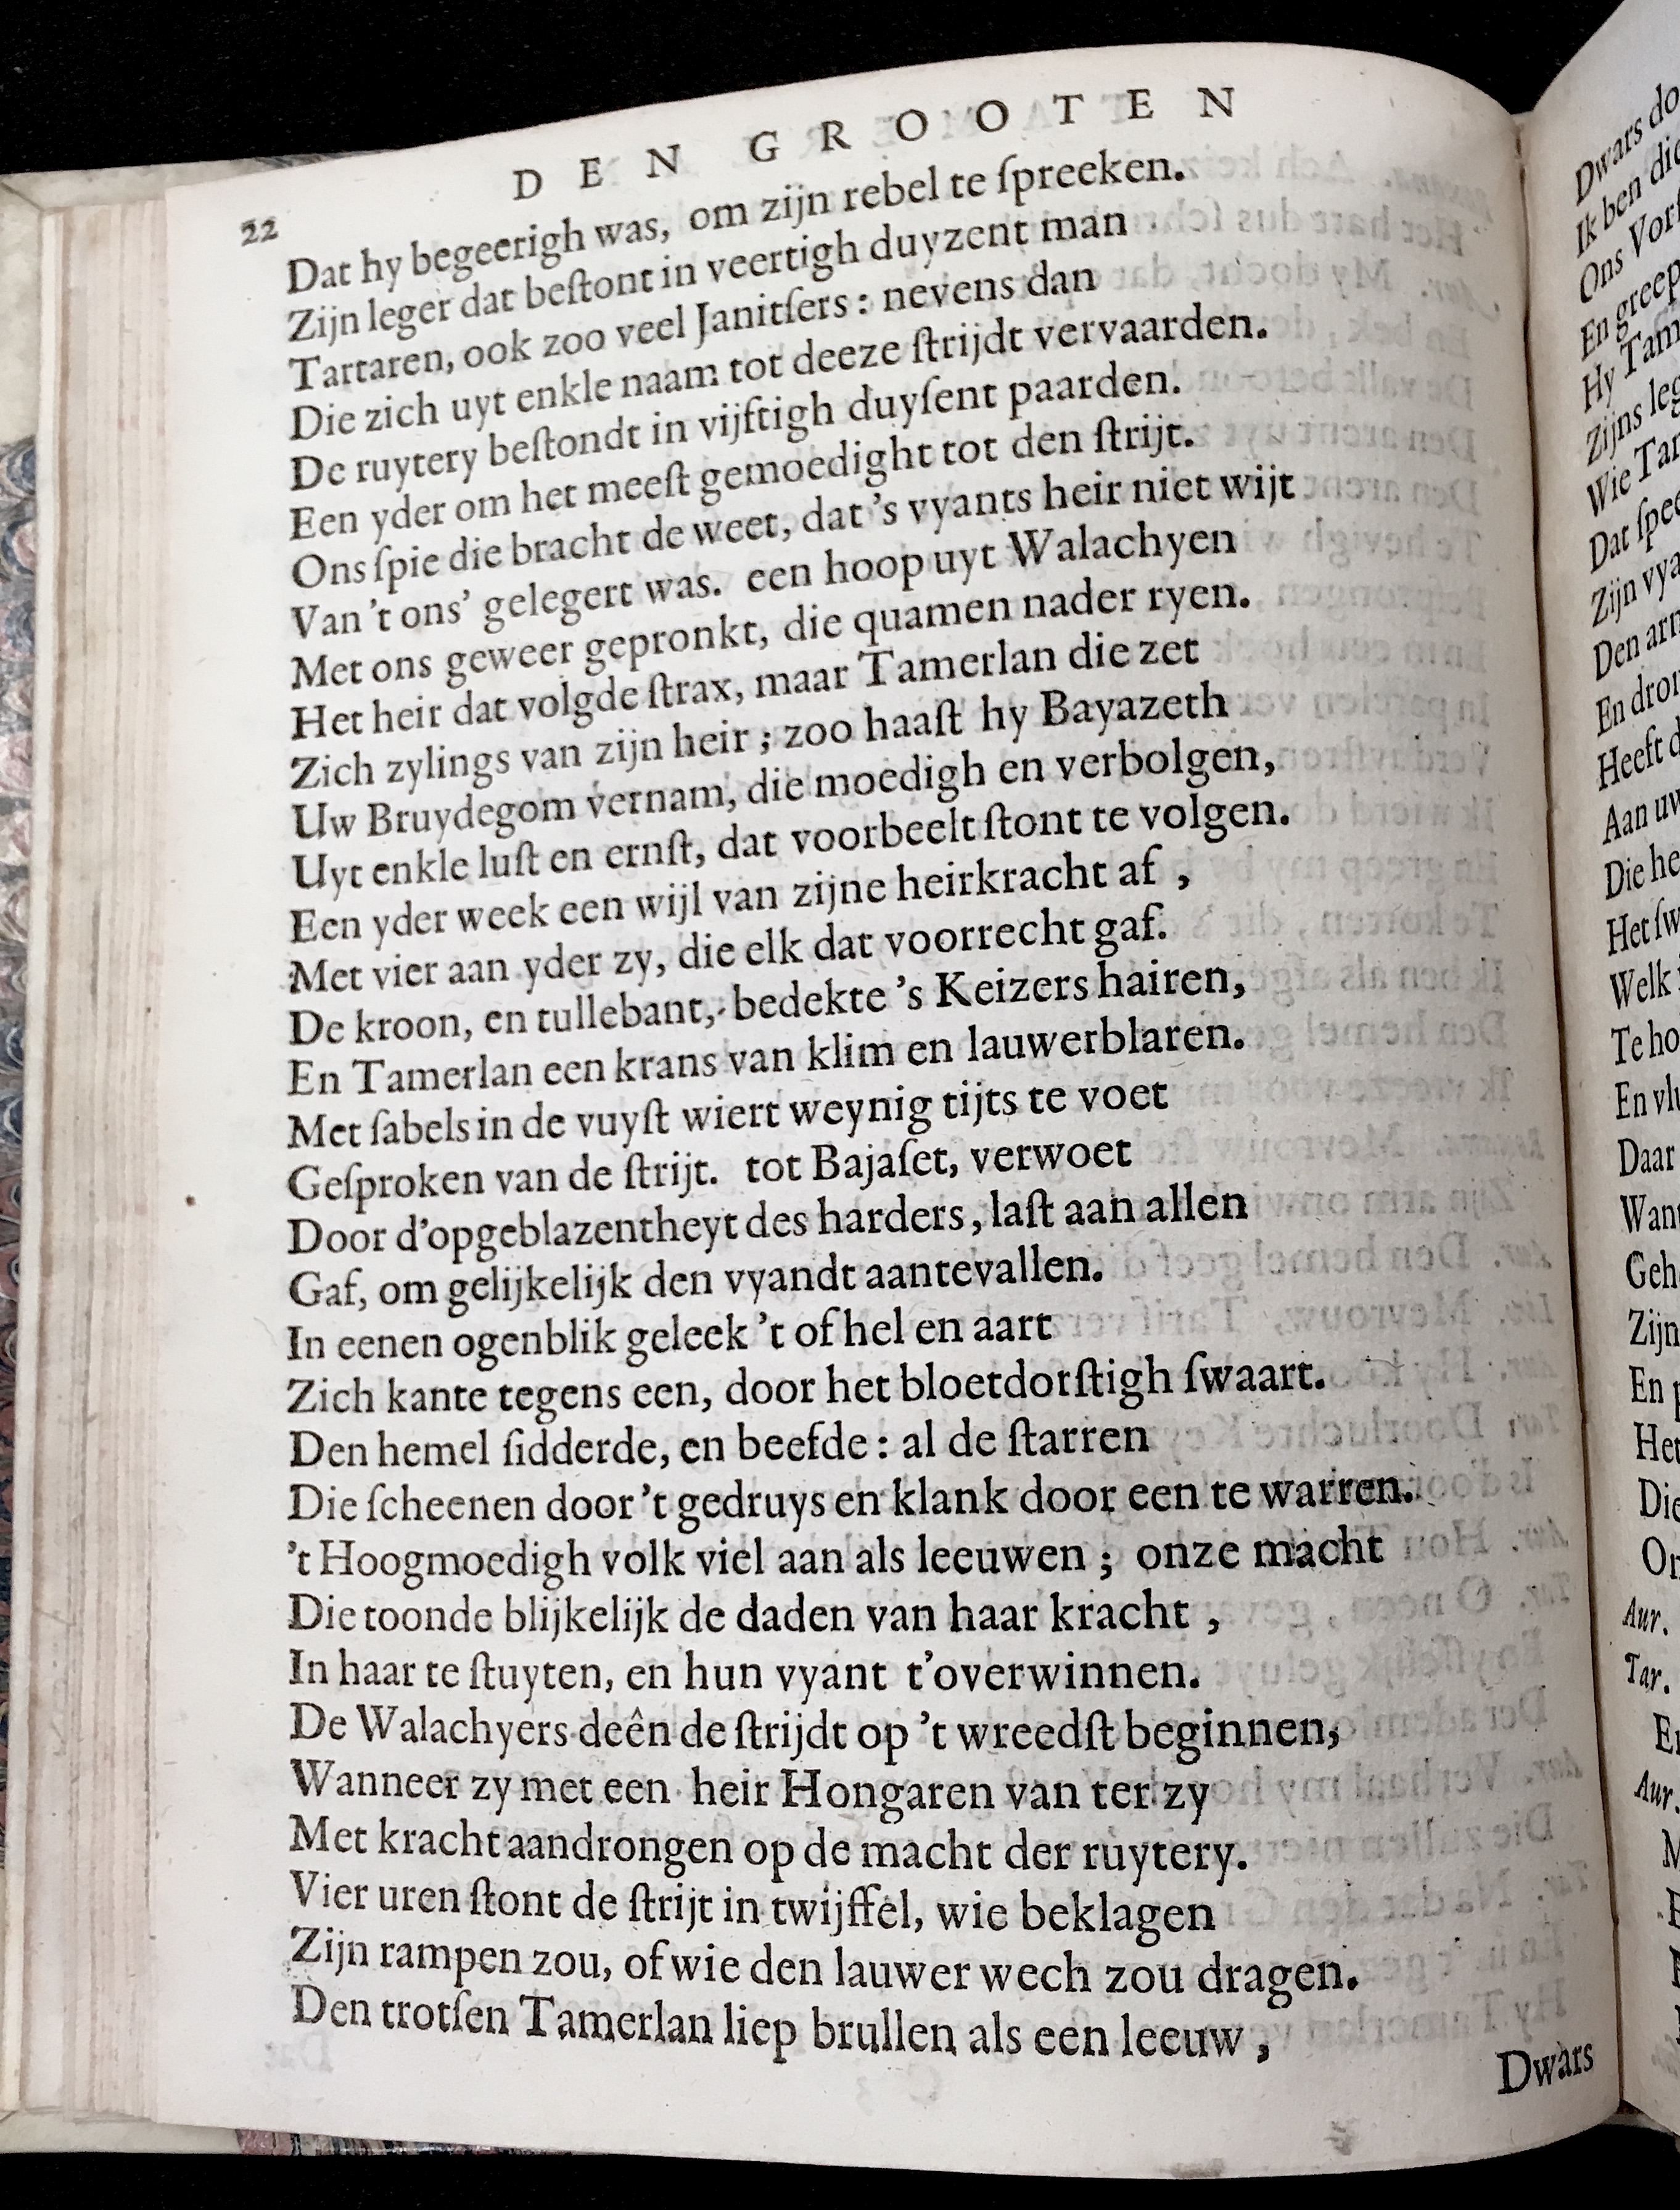 22
DEN GROOTEN
Dat hy begeerigh was, om zijn rebel te ſpreeken.
Zijn leger dat beſtont in veertigh duyzent man
Tartaren, ook zoo veel Janitſers: nevens dan
Die zich uyt enkle naam tot deeze ſtrijdt vervaarden.
De ruytery beſtondt in vijftigh duyſent paarden.
Een yder om het meeſt gemoedight tot den ſtrijt.
Ons ſpie die bracht de weet, dat 's vyants heir niet wijt
Van 't ons' gelegert was. een hoop uyt Walachyen
Met ons geweer gepronkt, die quamen nader ryen.
Het heir dat volgde ſtrax, maar Tamerlan die zet
Zich zylings van zijn heir; zoo haaſt hy Bayazeth
Uw Bruydegom vernam, die moedigh en verbolgen,
Uyt enkle luſt en ernſt, dat voorbeelt ſtont te volgen.
Een yder week een wijl van zijne heirkracht af,
Met vier aan yder zy, die elk dat voorrecht gaf.
De kroon, en tullebant, bedekte 's Keizers hairen,
En Tamerlan een krans van klim en lauwerblaren.
Met ſabels in de vuyſt wiert weynig tijts te voet
Geſproken van de ſtrijt. tot Bajaſet, verwoet
Door d'opgeblazentheyt des harders, laſt aan allen
Gaf, om gelijkelijk den vyandt aantevallen.
In eenen ogenblik geleek 't of hel en aart
Zich kante tegens een, door het bloetdorſtigh ſwaart.
Den hemel ſidderde, en beefde: al de ſtarren
Die ſcheenen door 't gedruys en klank door een te warren.
't Hoogmoedigh volk viel aan als leeuwen; onze macht
Die toonde blijkelijk de daden van haar kracht,
In haar te ſtuyten, en hun vyant t'overwinnen.
De Walachyers deên de ſtrijdt op 't wreedſt beginnen,
Wanneer zy met een heir Hongaren van ter zy
Met kracht aandrongen op de macht der ruytery.
Vier uren ſtont de ſtrijt in twijffel, wie beklagen
Zijn rampen zou, of wie den lauwer wech zou dragen.
Den trotſen Tamerlan liep brullen als een leeuw,
Dwars
Dwars
Ik ben
Ons
En
Hy
Zijns
Wie
Dat
Zijn
Den
En
Heeft
Aan
Die
Het
Welk
Te
En
Daar
Zijn
En
Het
Aur.
Tar.
Aur.